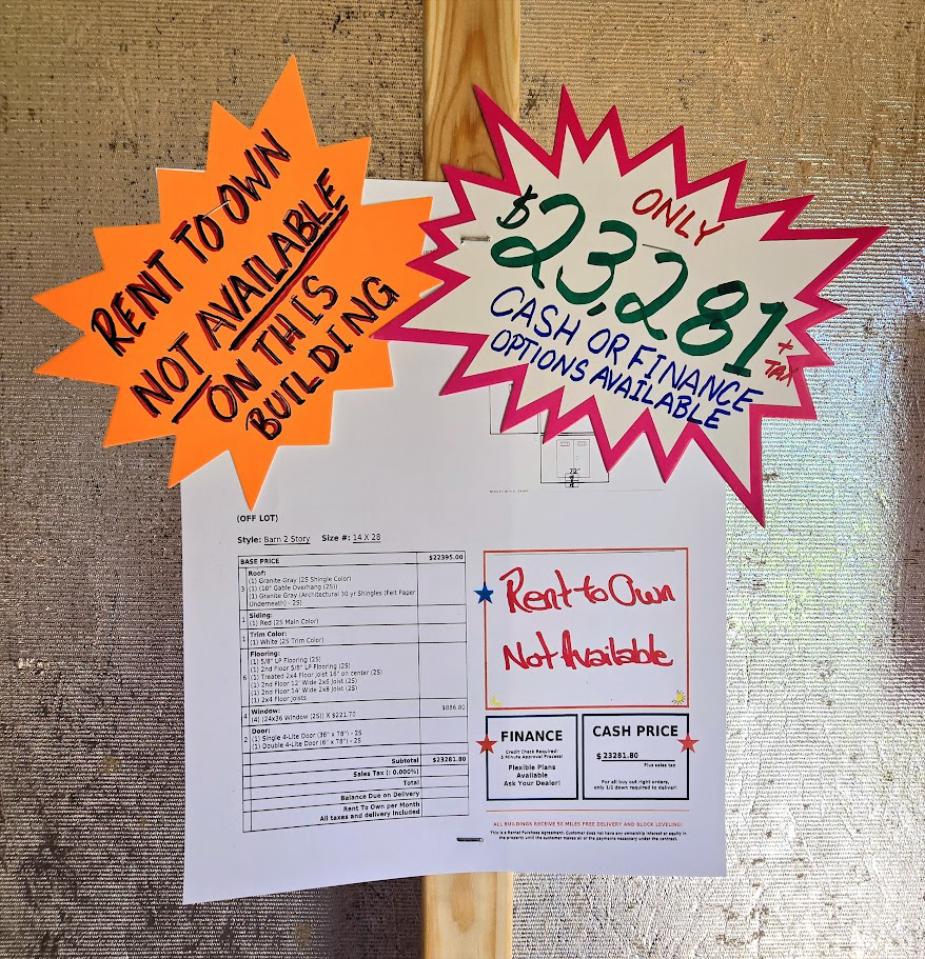 RENT TO OWN
NOT AVAILABLE
ON THIS
BUILDING
ONLY
$23,281
+
TAX
CASH OR FINANCE
OPTIONS AVAILABLE
72"
(OFF LOT)
Style: Barn 2 Story Size #: 14 X 28
BASE PRICE $22395.00
Roof:
3 (1) Granite Gray (25 Shingle Color)
(1) (10" Gable Overhang (2S))
(1) Granite Gray (Architectural 30 yr Shingles (Felt Paper
Underneath) - 2S)
Siding:
1 (1) Red (25 Main Color)
Trim Color:
1 (1) White (25 Trim Color)
Flooring:
6 (1) 5/8" LP Flooring (2S)
(1) 2nd Floor 5/8" LP Flooring (2S)
(1) Treated 2x4 Floor Joist 16" on center (2S)
(1) 2nd Floor 12' Wide 2x6 Joist (2S)
(1) 2nd Floor 14' Wide 2x8 Joist (2S)
(1) 2x4 Floor Joists
Window:
4 (4) (24x36 Window (2S)) X $221.70 $886.80
Door:
2 (1) Single 4-Lite Door (36" x 78") - 2S
(1) Double 4-Lite Door (6" x 78") - 2S
Subtotal $23281.80
Sales Tax (: 0.000%)
Total
Balance Due on Delivery
Rent To Own per Month
All taxes and delivery Included
Rent to Own
Not Available
FINANCE
Credit Check Required!
5 Minute Approval Process!
Flexible Plans
Available
Ask Your Dealer!
CASH PRICE
$ 23281.80
Plus sales tax
For all buy out right orders,
only 1/2 down required to deliver!
ALL BUILDINGS RECEIVE 50 MILES FREE DELIVERY AND BLOCK LEVELING!
This is a Rental Purchase Agreement. Customer does not have any ownership interest or equity in
the property until the customer makes all of the payments necessary under the contract.